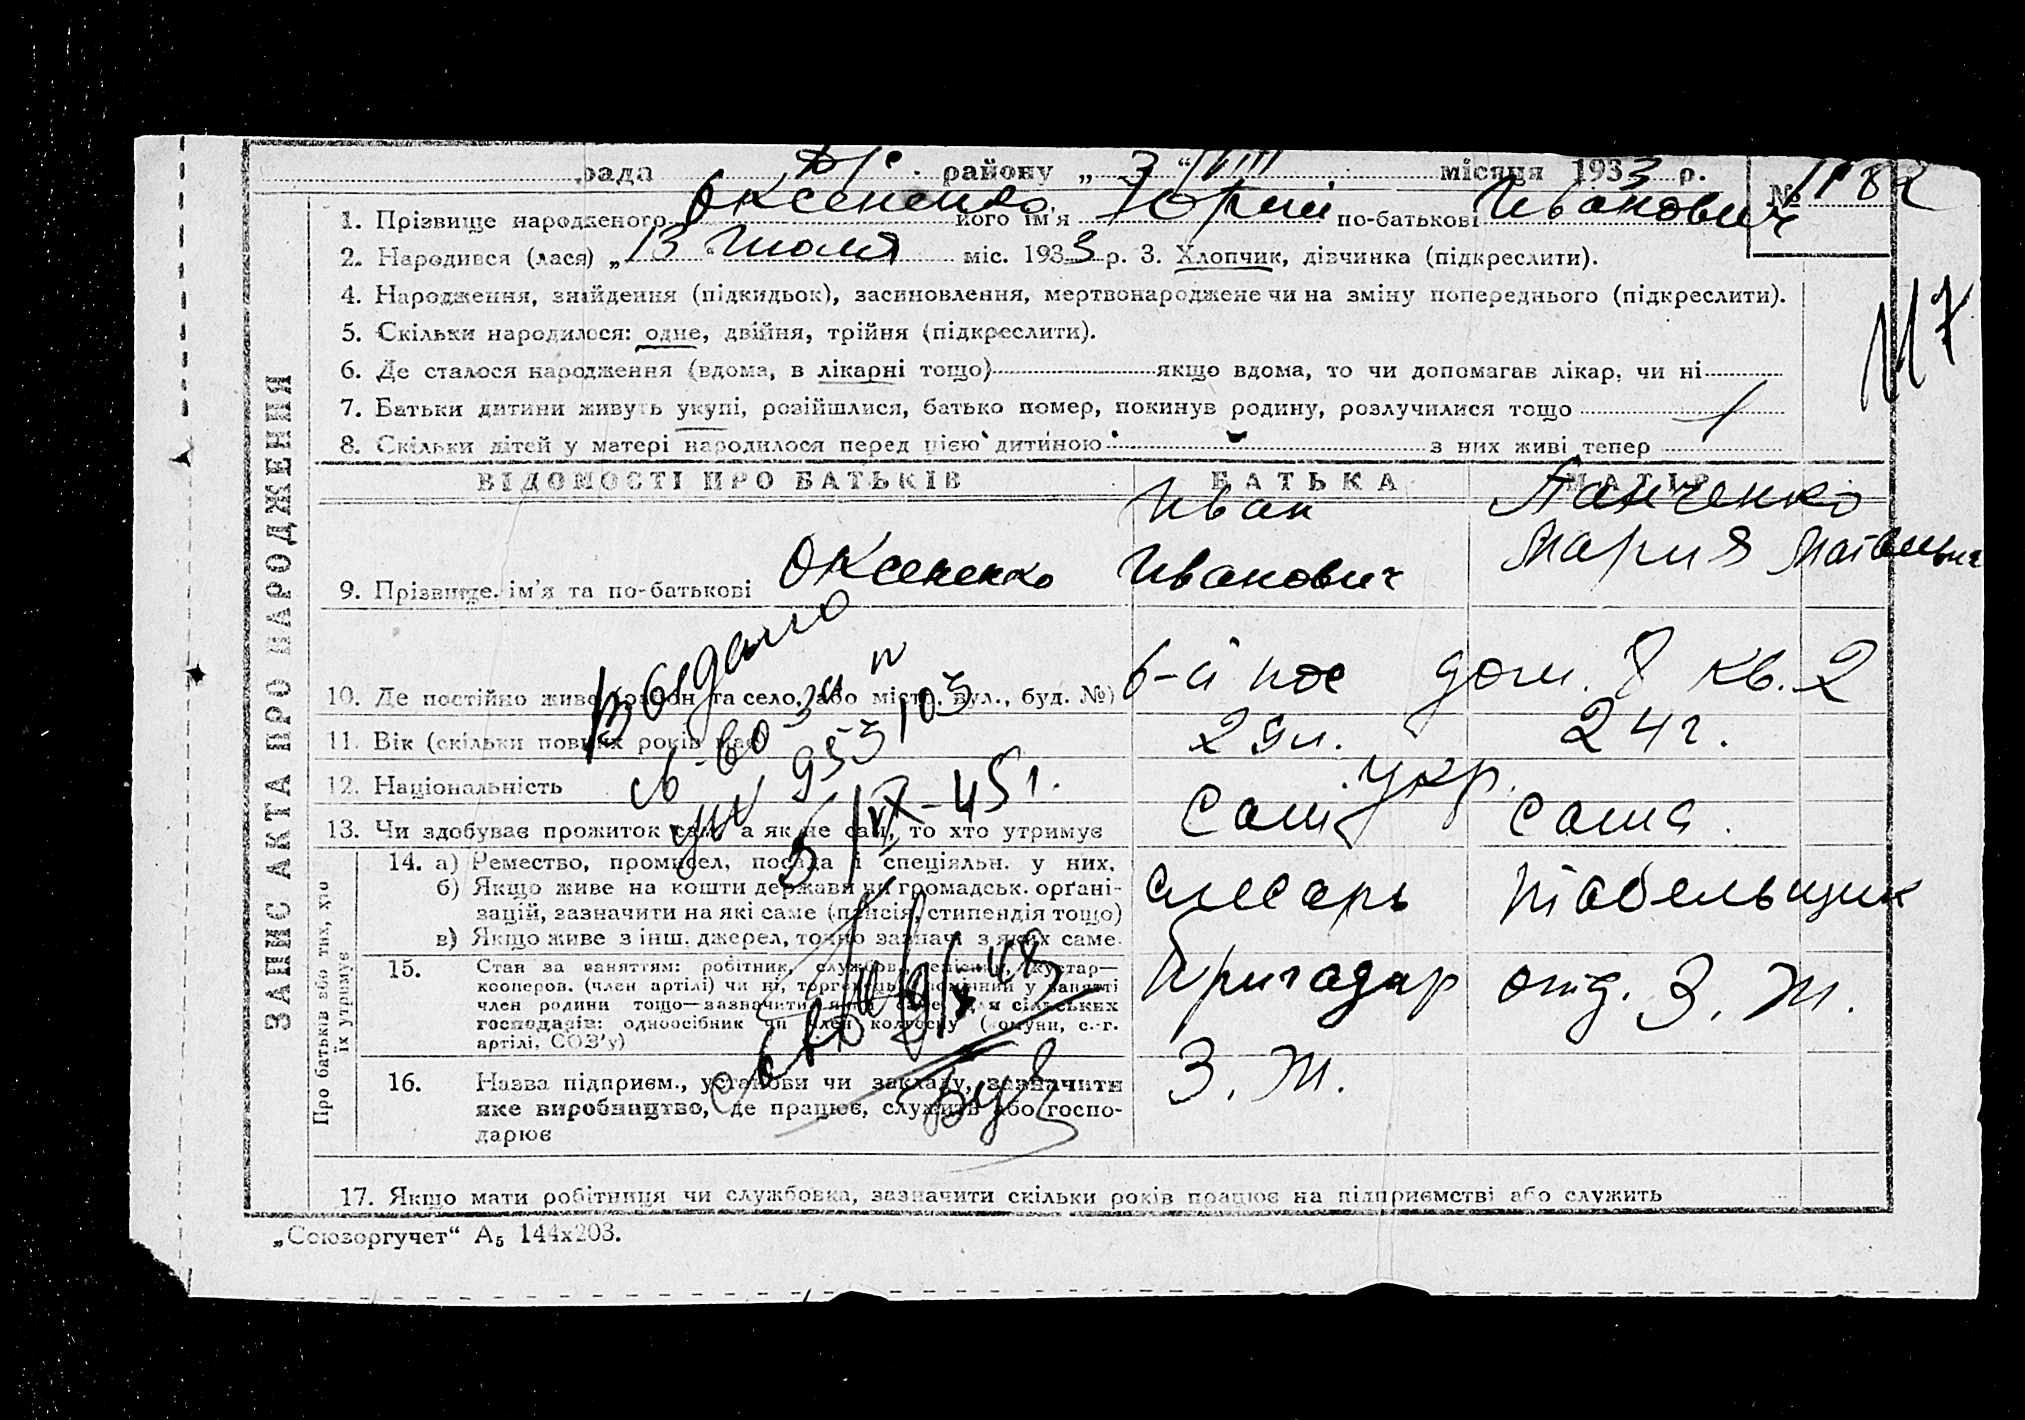 рада району „ 3 “ VIII місяця 1933 р. № 1182
1. Прізвище народженого Оксененко його ім'я Юрий по-батькові Иванович
2. Народився (лася) „13“ июля міс. 1933 р. 3. Хлопчик, дівчинка (підкреслити).
4. Народження, знайдення (підкидьок), засиновлення, мертвонароджене чи на зміну попереднього (підкреслити).
5. Скільки народилося: одне, двійня, трійня (підкреслити).
6. Де сталося народження (вдома, в лікарні тощо) якщо вдома, то чи допомагав лікар, чи ні
7. Батьки дитини живуть укупі, розійшлися, батько помер, покинув родину, розлучилися тощо
8. Скільки дітей у матері народилося перед цією дитиною з них живі тепер
ЗАПИС АКТА ПРО НАРОДЖЕННЯ
ВІДОМОСТІ ПРО БАТЬКІВ БАТЬКА МАТІР
9. Прізвище, ім'я та по-батькові Оксененко Иван Иванович Панченко Мария
10. Де постійно живе (район та село, або місто, вул., буд. №) 6-й пос дом. 8 кв. 2
11. Вік (скільки повних років має) 29 л. 24 г.
12. Національність укр.
13. Чи здобуває прожиток сам, а як не сам, то хто утримує сам сама
Про батьків або тих, хто їх утримує
14. а) Ремество, промисел, посада і спеціяльн. у них. слесарь табельщик
б) Якщо живе на кошти держави чи громадськ. орґані-
зацій, зазначити на які саме (пенсія, стипендія тощо)
в) Якщо живе з інш. джерел, точно зазнач. з яких саме.
15. Стан за заняттям: робітник, службов., селянин, кустар— бригадир отд. З. Т.
кооперов. (член артілі) чи ні, торговець, помічний у занятті
член родини тощо—зазначити яке саме, для сільських
господарів: одноосібник чи член колгоспу (комуни, с.-г.
артілі, СОЗ'у)
16. Назва підприєм., установи чи закладу, зазначити З. Т.
яке виробництво, де працює, служить або госпо-
дарює
17. Якщо мати робітниця чи службовка, зазначити скільки років працює на підприємстві або служить
„Союзоргучет“ А5 144х203.